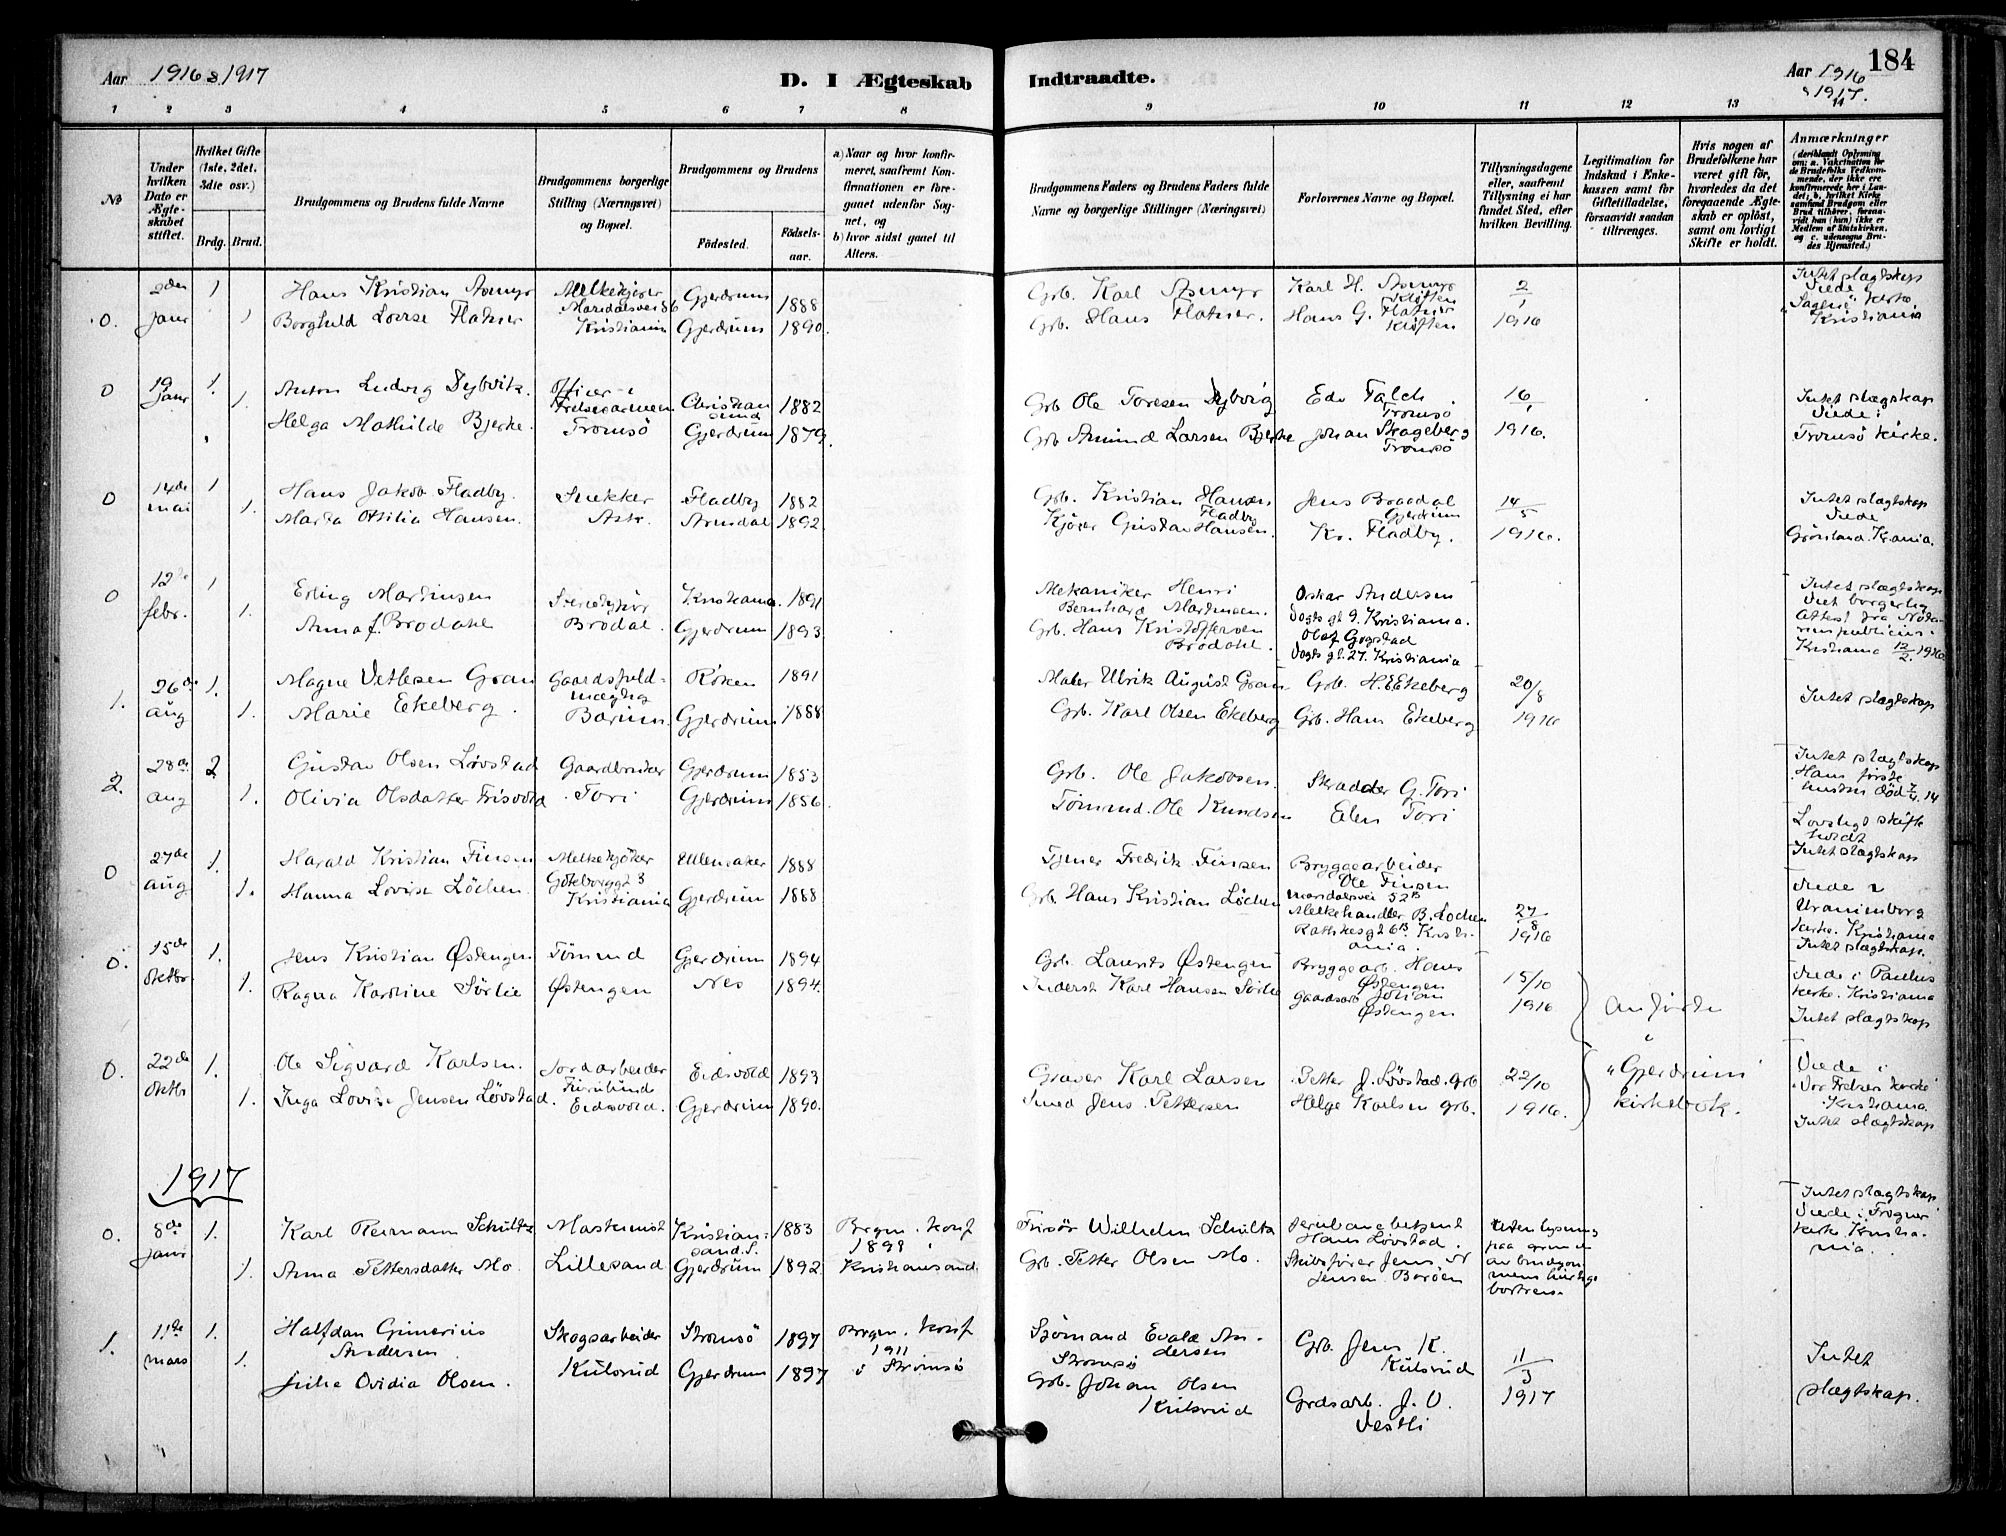 184
Aar 1916 & 1917
D. I Ægteskab Indtraadte.
Aar 1916
& 1917.
1 2 3 4 5 6 7 8 9 10 11 12 13 14
No
Under hvilken Dato er Ægteskabet stiftet.
Hvilket Gifte (1ste, 2det, 3die osv.)
Brdg. Brud.
Brudgommens og Brudens fulde Navne
Brudgommens borgerlige Stilling (Næringsvei) og Bopæl.
Brudgommens og Brudens
Födested.
Födselsaar.
a) Naar og hvor konfirmeret, saafremt Konfirmationen er foregaaet udenfor Sognet, og
b) hvor sidst gaaet til Alters.
Brudgommens Faders og Brudens Faders fulde Navne og borgerlige Stillinger (Næringsvei)
Forlovernes Navne og Bopæl.
Tillysningsdagene eller, saafremt Tillysning ei har fundet Sted, efter hvilken Bevilling.
Legitimation for Indskud i Enkekassen samt for Giftetilladelse, forsaavidt saadan tiltrænges.
Hvis nogen af Brudefolkene har været gift för, hvorledes da det foregaaende Ægteskab er oplöst, samt om lovligt Skifte er holdt.
Anmærkninger
(deriblandt Oplysning om: a. Vakcination for de Brudefolks Vedkommende, der ikke ere konfirmerede her i Landet, b. hvilket Kirkesamfund Brudgom eller Brud tilhörer, forsaavidt han (hun) ikke er Medlem af Statskirken, og c. udensogns Brudes Hjemsted.)
0. 2den Janr 1 1
Hans Kristian Asmyr
Borghild Lovise Flatner
Melkekjører
Maridalsvei 86
Kristiania
Gjerdrum 1888
Gjerdrum 1890.
Grb. Karl Asmyr
Grb. Hans Flatner.
Karl H. Asmyr
Kløften
Hans G. Flatner
Kløften
2/1
1916
Intet slægtskap
Viede i
"Sagene" kirke
Kristiania
0 19 Janr 1. 1.
Anton Ludvig Dybvik.
Helga Mathilde Bjerke.
Officer i
Frelsesarmeen
Tromsö
Christiansund 1882
Gjerdrum 1879.
Grb Ole Toresen Dybvig
Grb Amund Larsen Bjerke
Edv Falch
Tromsö
Johan Skogeberg
Tromsö
16/1
1916.
Intet slægtskap
Viede i
Tromsö kirke.
0 14de mai 1 1.
Hans Jakob Fladby.
Marta Otilia Hansen.
Snekker
Ask.
Fladby 1882
Arendal 1892
Grb. Kristian Hansen
Fladby
Kjører Gustav Hansen.
Jens Braadal
Gjerdrum
Kr. Fladby.
14/5
1916.
Intet slægtskap
Viede
Grönland. Kr.ania.
0 12te febr. 1 1.
Erling Martinsen
Anna J. Brodahl
Brödal.
Kristiania. 1891
Gjerdrum 1893.
Mekaniker Henri
Bernhard Martinsen.
Grb. Hans Kristoffersen
Brödahl.
Oskar Andersen
Vogts gt 9. Kristiania.
Olaf Gogstad
Vogts gt. 27. Kristiania
Intet slægtskap
Viet borgerlig
Attest fra Notariuspublicus i
Kristiania 12/2. 1916
1. 26de aug 1. 1.
Magne Vetlesen Gran
Marie Ekeberg.
Gaardsfuldmægtig
Bærum.
Röken 1891
Gjerdrum 1888
Maler Ulrik August Gran
Grb. Karl Olsen Ekeberg
Grb. H. Ekeberg
Grb. Hans Ekeberg
20/8
1916
Intet slægtskap
2. 28de aug 2. 1.
Gustav Olsen Lövstad
Olivia Olsdatter Frisvold
Gaardbruker
Tori
Gjerdrum 1853
Gjerdrum 1856.
Grb. Ole Jakobsen.
Tömmd. Ole Knudsen
Skrædder G. Tori
Elen Tori
Intet slægtskap
Hans første
hustru död 7/4. 14
Lovligt skifte
holdt
0 27de aug 1. 1.
Harald Kristian Finsen
Hanna Lovise Löchen.
Melkekjöker
Göteborggt 3
Kristiania
Ullensaker 1888
Gjerdrum 1888
Tjener Fredrik Finsen
Grb. Hans Kristian Löchen
Bryggearbeider
Ole Finsen
Maridalsvei 52B
Melkehandler B. Lochen
Rathkesgt 6B. Kristiania.
27/8
1916
Intet slægtskap
Viede i
Uranienborg
kirke. Kristiania
0. 15de oktbr 1. 1.
Jens Kristian Østengen
Ragna Karoline Sörlie
Tömmd
Østengen
Gjerdrum 1894
Nes 1894.
Grb. Laurits Østengen
Inderst Karl Hansen Sörlie
Bryggearb. Hans
Østengen
Gaardsarb Johan
Østengen
15/10
1916
Anförte
i
"Gjerdrum"
kirkebok.
Intet slægtskap.
Viede i Paulus
kirke. Kristiania
Intet slægtskap
0. 22de oktb 1. 1.
Ole Sigvard Karlsen.
Inga Lovise Jensen Lövstad.
Jordarbeider
Eidsvold.
Eidsvold 1893
Gjerdrum 1890.
Graver Karl Larsen
Smed Jens Pettersen
Petter J. Lövstad. Grb
Helge Karlsen Grb.
22/10
1916.
Viede i
"Vor Frelsers kirke"
Kristiania.
Intet slægtskap
1917
0. 8de Janr 1. 1.
Karl Reimann Schultz
Anna Pettersdatter Mo.
Maskinist
Lillesand
Kristiansand S. 1883
Gjerdrum 1892.
Brgm. konf
1898 i
Kristiansand
Frisör Wilhelm Schultz
Grb. Petter Olsen Mo.
Jernbanebetjent
Hans Lövstad.
Skibsfører Jens N
Jensen. Boröen
Uten lysning
paa grund
av brudgommens hurtige
bortreise
Intet slægtskap
Viede i Frogner
kirke Kristiania.
1. 11te mars 1. 1.
Halfdan Gunerius
Andersen
Julie Ovidia Olsen.
Skogsarbeider
Kulsrud
Strömsö 1897
Gjerdrum 1897
Brgm. konf
1911
i Strömsö
Sjömand Evald Andersen
Strömsö
Grb. Johan Olsen
Kulsrud
Grb. Jens K.
Kulsrud
Grdsarb. J. O.
Vestli
11/3
1917
Intet
slægtskap.